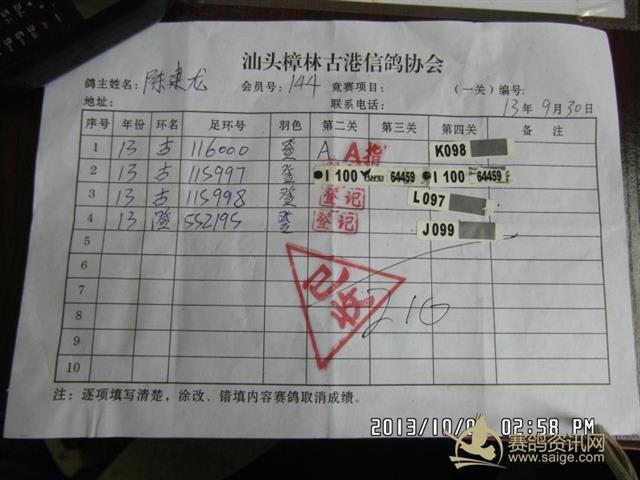 汕头樟林古港信鸽协会
鸽主姓名: 陈秉龙 会员号: 144 竞赛项目: (一关)编号:
地址: 联系电话: 13年9月30日
序号 年份 环名 足环号 羽色 第二关 第三关 第四关 备注
1 13 古 116000 登 A A指 K098
2 13 古 115997 登 I 100 64459 I 100 64459
3 13 古 115998 登 登记 L097
4 13 隆 552195 登 登记 J099
5
6
7 已收
8 210
9
10
注:逐项填写清楚,涂改、错填内容赛鸽取消成绩。
2013/10/0 02:58 PM
赛鸽资讯网
www.saige.com